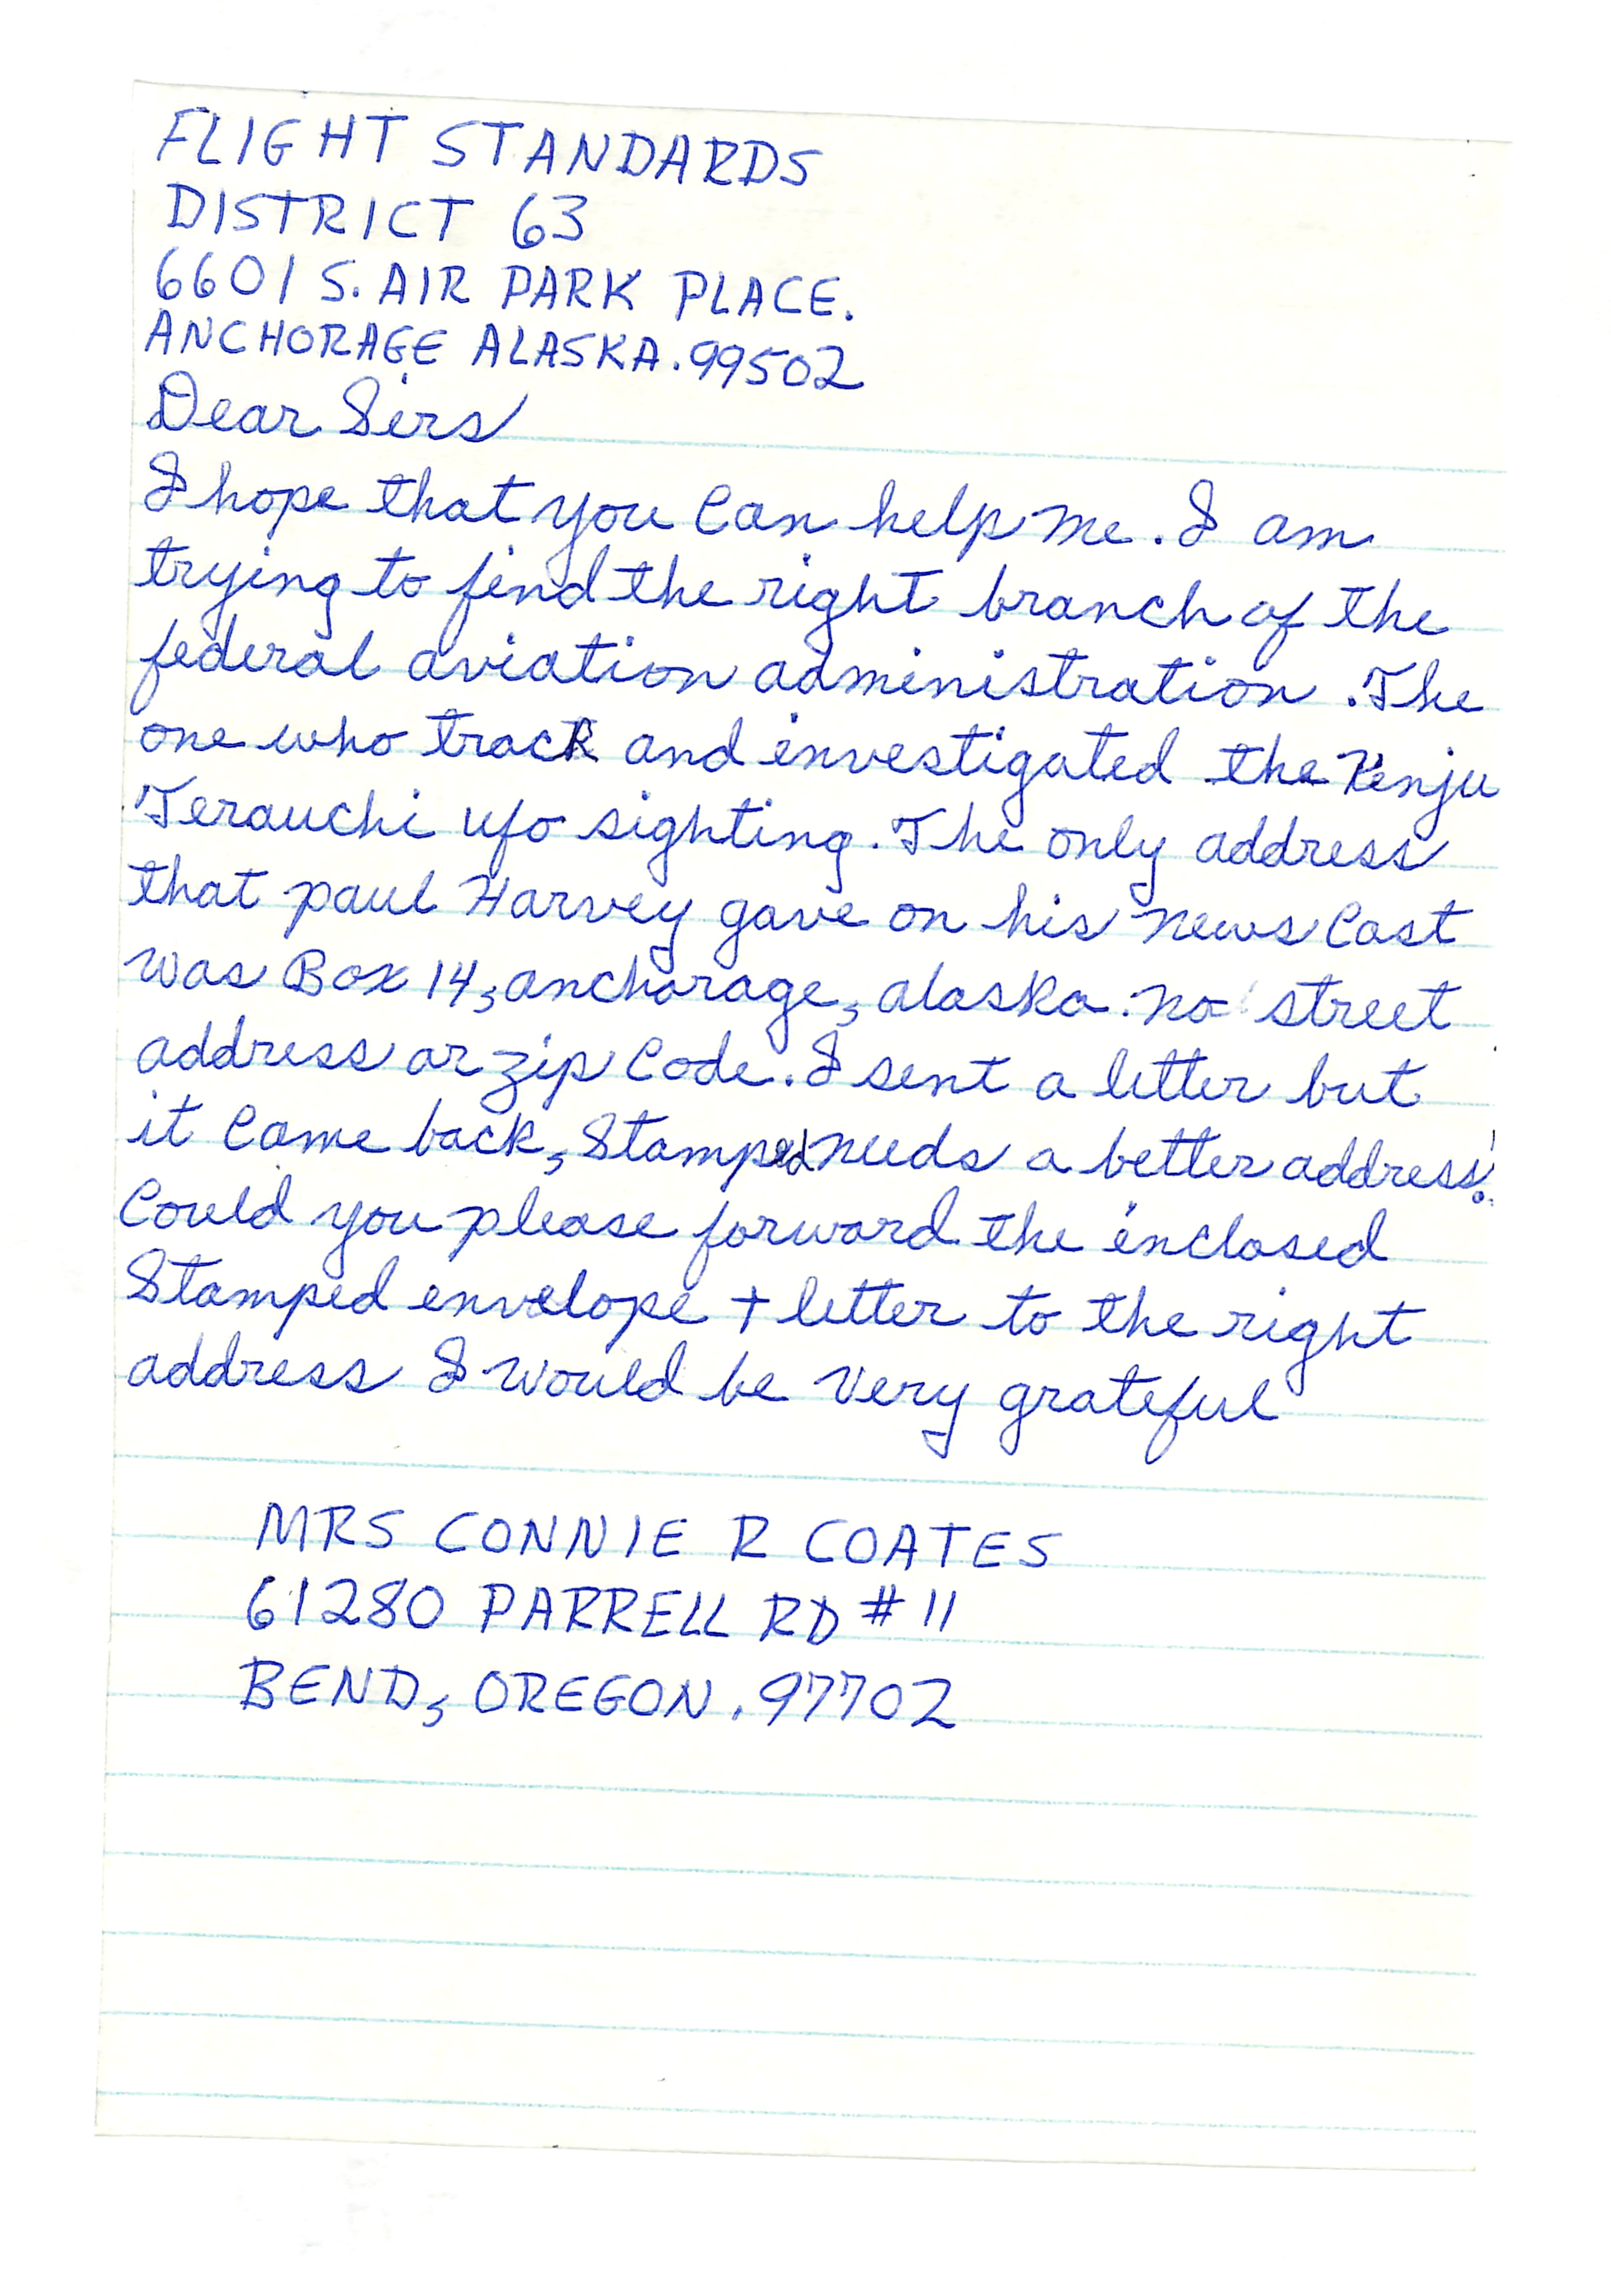 FLIGHT STANDARDS
DISTRICT 63
6601 S. AIR PARK PLACE.
ANCHORAGE ALASKA. 99502
Dear Sirs
I hope that you can help me. I am
trying to find the right branch of the
federal aviation administration. The
one who track and investigated the Kenju
Terauchi ufo sighting. The only address
that paul Harvey gave on his news cast
was Box 14, anchorage, alaska. no street
address or zip code. I sent a letter but
it came back, stamped needs a better address!
Could you please forward the enclosed
stamped envelope + letter to the right
address I would be very grateful
MRS CONNIE R COATES
61280 PARRELL RD # 11
BEND, OREGON. 97702